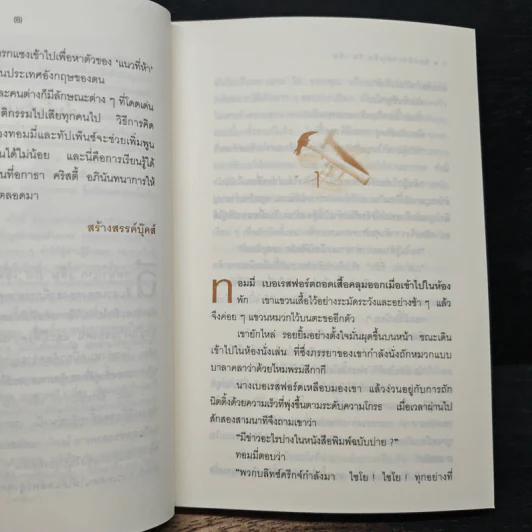 (๕)
รกแซงเข้าไปเพื่อหาตัวของ 'แนวที่ห้า'
นประเทศอังกฤษของตน
ละคนต่างก็มีลักษณะต่าง ๆ ที่โดดเด่น
ติกรรมไปเสียทุกคนไป วิธีการคิด
องทอมมี่และทัปเพ็นซ์จะช่วยเพิ่มพูน
นได้ไม่น้อย และนี่คือการเรียนรู้ได้
นที่อกาธา คริสตี้ อภินันทนาการให้
ตลอดมา
สร้างสรรค์บุ๊คส์
๑
ทอมมี่ เบอเรสฟอร์ดถอดเสื้อคลุมออกเมื่อเข้าไปในห้อง
พัก เขาแขวนเสื้อไว้อย่างระมัดระวังและอย่างช้า ๆ แล้ว
จึงค่อย ๆ แขวนหมวกไว้บนตะขออีกตัว
เขายักไหล่ รอยยิ้มอย่างตั้งใจมั่นผุดขึ้นบนหน้า ขณะเดิน
เข้าไปในห้องนั่งเล่น ที่ซึ่งภรรยาของเขากำลังนั่งถักหมวกแบบ
บาลาคลาว่าด้วยไหมพรมสีกากี
นางเบอเรสฟอร์ดเหลือบมองเขา แล้วง่วนอยู่กับการถัก
นิตติ้งด้วยความเร็วที่พุ่งขึ้นตามระดับความโกรธ เมื่อเวลาผ่านไป
สักสองสามนาทีจึงถามเขาว่า
"มีข่าวอะไรบ้างในหนังสือพิมพ์ฉบับบ่าย ?"
ทอมมี่ตอบว่า
"พวกบลิทซ์ครีกซ์กำลังมา ไชโย ! ไชโย ! ทุกอย่างที่